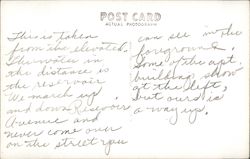 POST CARD
ACTUAL PHOTOGRAPH
This is taken
from the elevated.
The water in
the distance is
the reservoir
We march up
and down Resevoir
Avenue and
never come over
on the street you
can see in the
foreground.
Some of the apt.
building show
at the left,
but ours is
a way up.